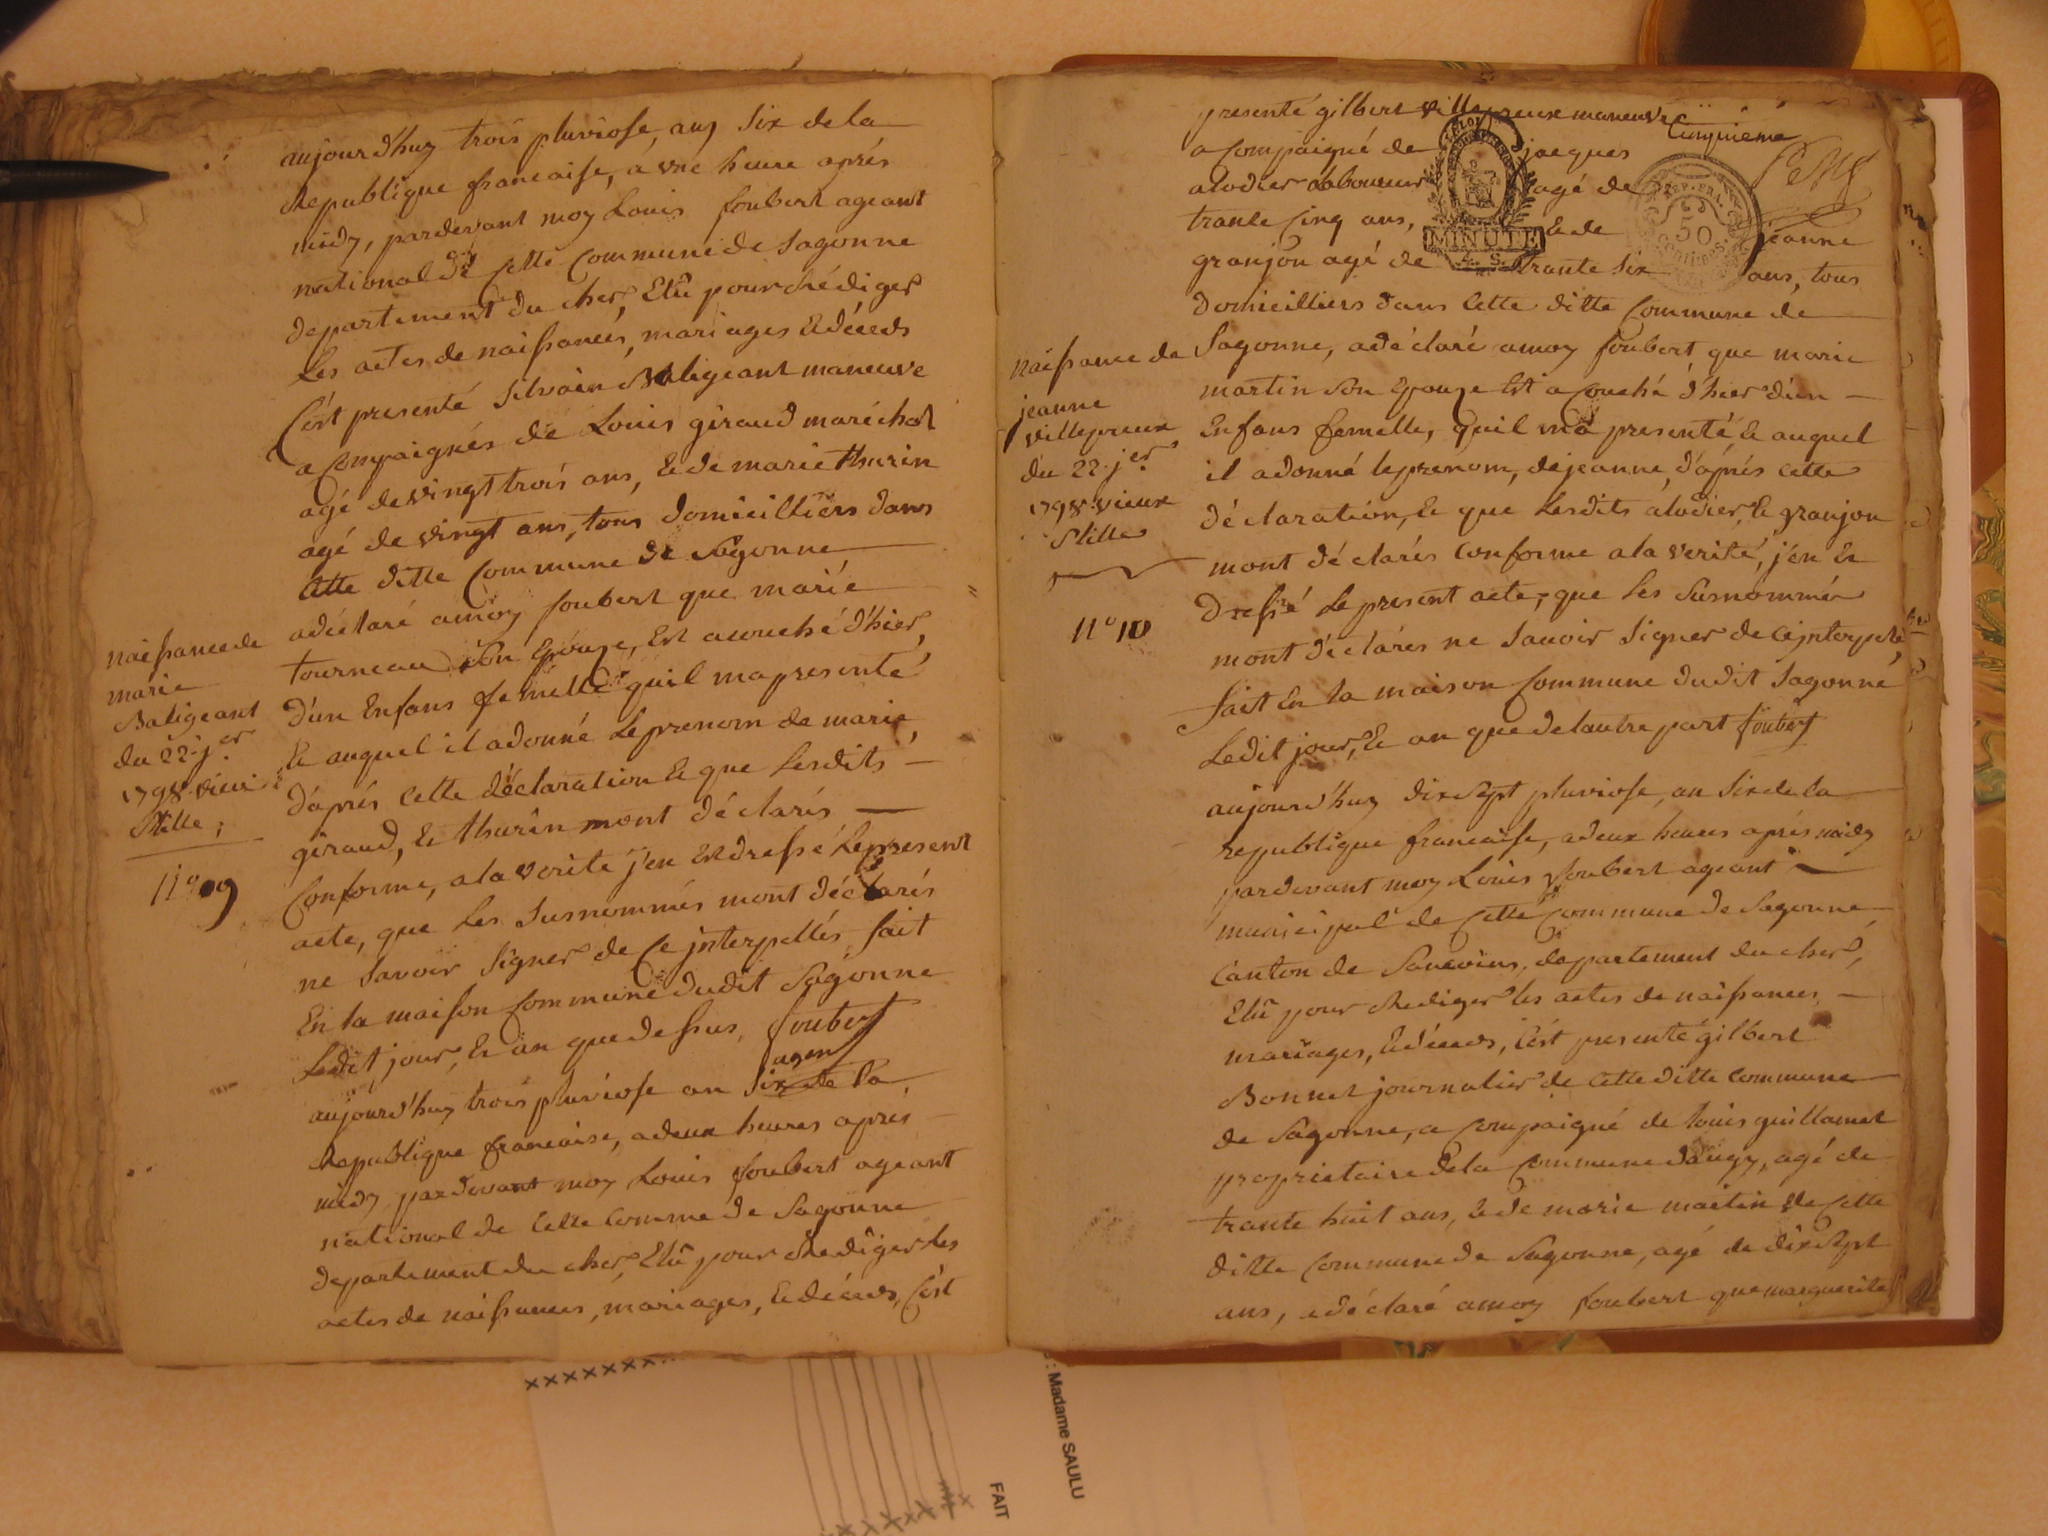 aujourd'huy trois pluviose, an Six de la
Republique francaise, a une heure aprés
midy, pardevant moy Louis foubert ageant
national de cette Commune de Sagonne
departement du cher, Elû pour Rédiger
Les actes de naissances, mariages Edécces
C'est presenté Silvain Baligeant maneuve
acompaignés de Louis giraud maréchal
agé de vingt trois ans, Ede marie thurin
agé de vingt ans, tous domicilliers dans
Cette ditte Commune de Sagonne
adéclaré amoy foubert que marie
tourneau Son Epouze, Est acouché d'hier,
D'un Enfans femelle quil mapresenté
Et auquel il adonné Leprenom de marie,
D'aprés cette déclaration Et que Lesdits
giraud, Et thurin mont déclarés
Conforme, ala verité j'en Ai dressé Lepresent
acte, que Les Susnommés mont déclarés
ne Savoir Signer de Ce jnterpellés, fait
En la maison Commune dudit Sagonne
Ledit jour, Et an que dessus, foubert
agent
naissance de
marie
Baligeant
du 22 jer
1798 vieu
Stille,
n° 9
aujourd'huy trois pluviose an Six de la
Republique francaise, adeux heures aprés
midy pardevant moy Louis foubert ageant
national de Cette Comme de Sagonne
departement du cher, Elû pour Rediger Les
actes de naissances, mariages, Edécces, C'est
presenté gilbert villepreux maneuve
Cinquieme
acompaigné de jacques
alodier laboureur agé de
trante Cinq ans, Ede jeanne
granjon agé de trante Six ans, tous
MINUTE
REP. FRA.
50
CENTIMES
domicilliers dans Cette ditte Commune de
Sagonne, adéclaré amoy foubert que marie
martin Son Epouze Est acouché d'hier d'un
Enfans femelle, quil ma presenté Et auquel
il adonné leprenom, de jeanne, d'aprés cette
déclaration, Et que Lesdits alodier, Et granjon
mont déclarés Conforme ala verité, j'en Ai
dressé Le present acte, que Les Susnommés
mont déclarés ne Savoir Signer de Ce jnterpelé,
fait En la maison Commune dudit Sagonne
Ledit jour, Et an que delautre part foubert
naissance de
jeanne
villepreux
du 22 jer
1798 vieux
Stille
n° 10
aujourd'huy dix Sept pluviose, an Six de la
republique francaise, adeux heures aprés midy
pardevant moy Louis foubert ageant
municipal de Cette Commune de Sagonne
Canton de Sancoins, departement du cher,
Elû pour Rediger les actes de naissances,
mariages, Edécces, C'est presenté gilbert
Bonnet journalier de Cette ditte Commune
de Sagonne, acompaigné de Louis guillamet
proprietaire dela Commune daugy, agé de
trante huit ans, Ede marie martin de Cette
ditte Commune de Sagonne, agé de dix Sept
ans, adéclaré amoy foubert que marguerite
: Madame SAULU
FAIT